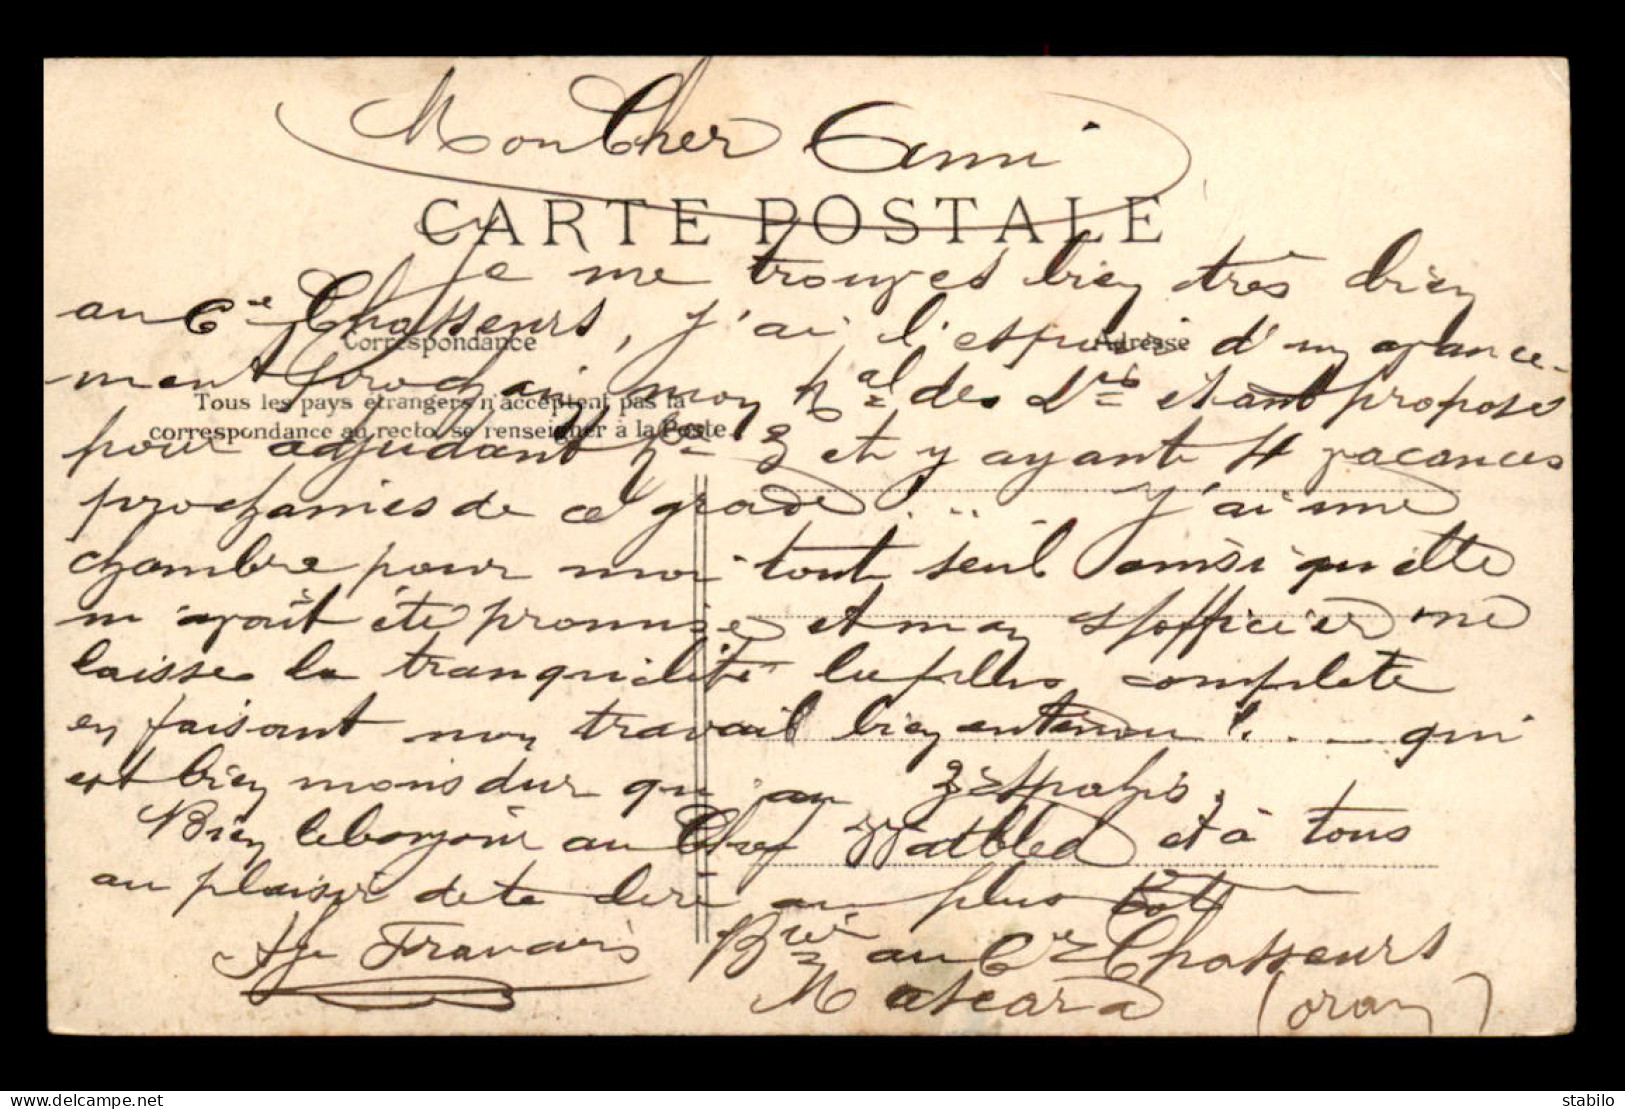 Mon Cher Ami
CARTE POSTALE
Je me trouves bien très bien
au 6e Chasseurs, j'ai l'espoir d'un avance-
Correspondance
Adresse
ment prochain, mon des étant proposé
Tous les pays étrangers n'acceptent pas la
correspondance au recto, se renseigner à la Poste.
pour adjudant et y ayant 4 vacances
prochaines de ce grade... J'ai une
chambre pour moi tout seul ainsi qu'elle
m'avait été promise et mon s/officier me
laisse la tranquilité la plus complete
en faisant mon travail bien entendu !... qui
est bien moins dur qu'au 2e spahis.
Bien le bonjour au Chef Watbled et à tous
au plaisir de te lire au plus tot
Francis
Brier au 6e Chasseurs
Mascara (oran)
stabilo